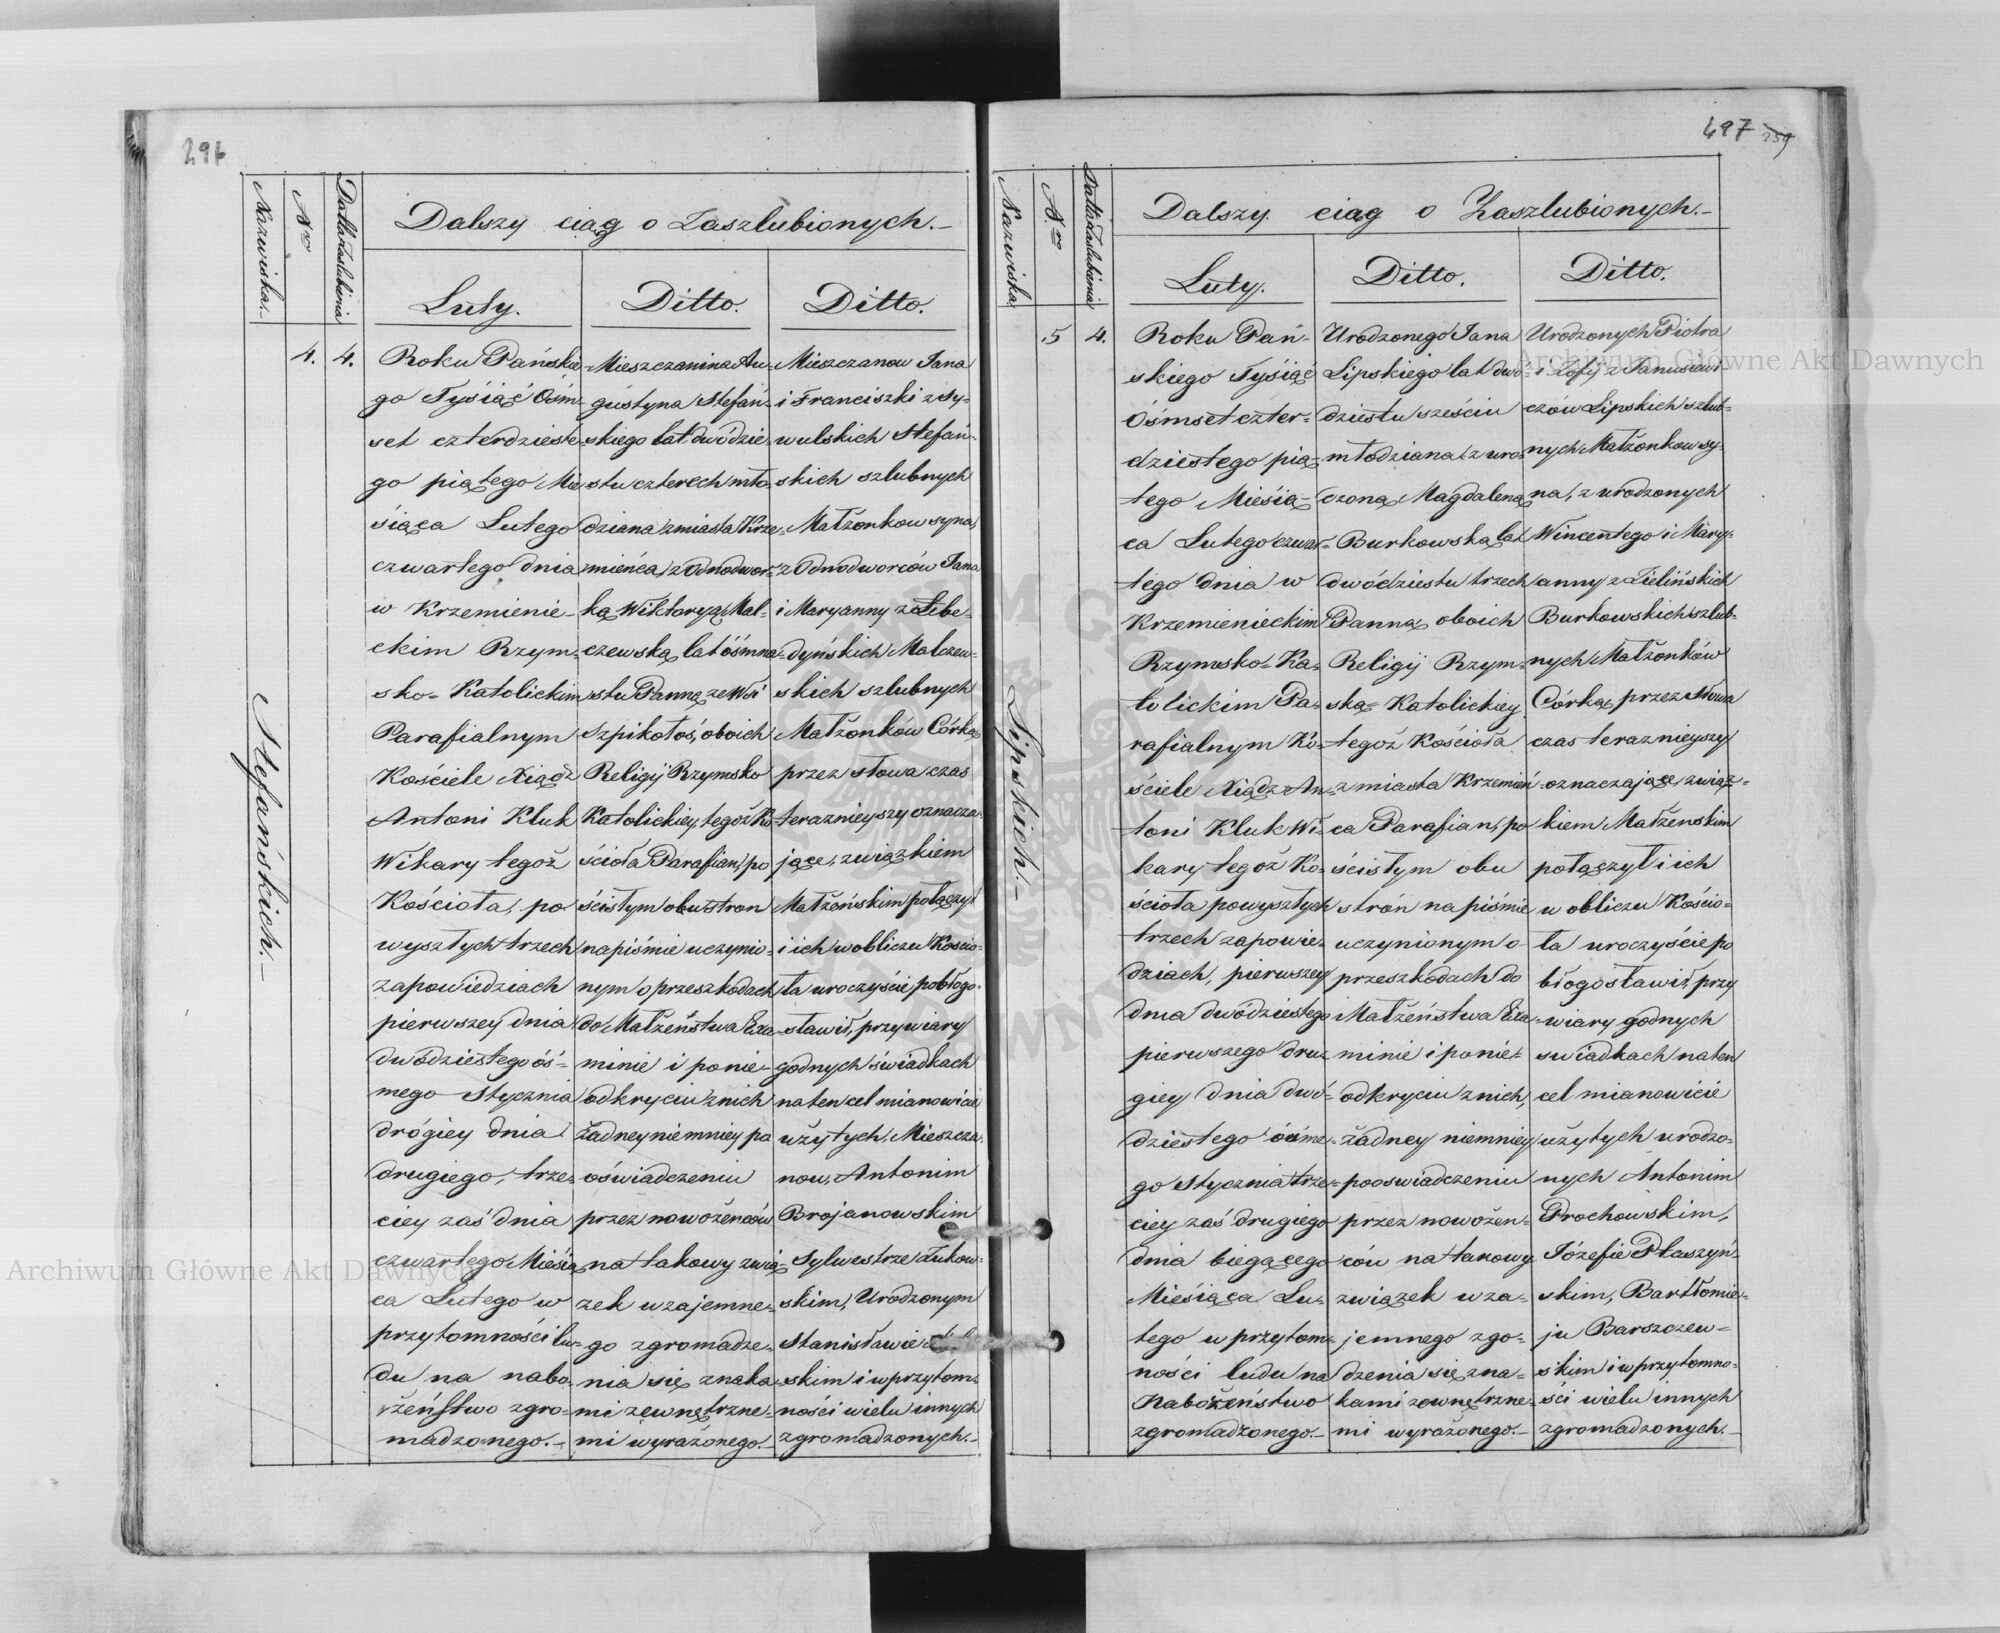 296
Nazwiska.
Nro
Datta zaslubienia
Dalszy ciąg o Zaszlubionych.-
Luty.
Ditto.
Ditto.
4.
4.
Stefańskich.-
Roku Pańskie-
go Tysiąć Ośm-
set czterdzieste-
go piątego Mie
siąca Lutego
czwartego dnia
w Krzemienie-
ckim Rzym-
sko-Katolickim
Parafialnym
Kościele Xiądz
Antoni Kluk
Wikary tegoż
Kościoła, po
wyszłych trzech
zapowiedziach
pierwszey dnia
dwódziestego óś-
mego Stycznia
drógiey dnia
drugiego, trze-
ciey zaś dnia
czwartego Miesią
ca Lutego w
przytomności lu-
du na nabo-
żeństwo zgro-
madzonego.-
Mieszczanina Au-
gustyna Stefań-
skiego lat dwódzie-
stu czterech mło-
dziana z miasta Krze-
mieńca, z Odnodwor-
ką Wiktoryą Mal-
czewską lat óśmna-
stu Panną ze Wsi
Szpikołos, oboich
Religij Rzymsko
Katolickiey, tegoż Ko-
ścioła Parafian, po
ścisłym obustron
napiśmie uczynio-
nym o przeszkodach
do Małżeństwa Exa-
minie i ponie-
odkryciu znich
żadney niemniey po
oświadczeniu
przez nowożenców
na takowy zwią
zek wzajemne-
go zgromadze-
nia się znaka-
mi zewnętrzne-
mi wyrażonego.-
Mieszczanow Jana
i Franciszki z Sy-
wulskich Stefań-
skich szlubnych
Małżonkow syna,
z Odnodworców Jana
i Maryanny z Łebe-
dyńskich Malczew-
skich szlubnych
Małżonków Córką,
przez słowa czas
teraznieyszy oznacza-
jące, związkiem
Małżeńskim połączył
i ich w obliczu Kościo-
ła uroczyście pobłogo-
sławił, przy wiary
godnych świadkach
na ten cel mianowicie
użytych, Mieszcza-
now, Antonim
Brojanowskim
Sylwestrze Łukow-
skim, Urodzonym
Stanisławie
skim i w przytom-
ności wielu innych
zgromadzonych.-
497 259
Nazwiska
Nro
Datta zaslubienia
Dalszy ciąg o Zaszlubionych.-
Luty.
Ditto.
Ditto.
5
4.
Lipskich.-
Roku Pań-
skiego Tysiąć
Óśmset czter-
dziestego pią-
tego Miesią-
ca Lutego czwar-
tego dnia w
Krzemienieckim
Rzymsko-Ka-
tolickim Pa-
rafialnym Ko-
ściele Xiądz An-
toni Kluk Wi-
kary tegoż Ko-
ścioła powyszłych
trzech zapowie-
dziach, pierwszey
dnia dwódziestego
pierwszego dru-
giey dnia dwó-
dziestego ósme-
go Stycznia trze-
ciey zaś drugiego
dnia biegącego
Miesiąca Lu-
tego w przytom-
ności ludu na
Nabożeństwo
zgromadzonego.-
Urodzonego Jana
Lipskiego lat dwó-
dziestu sześciu
młodziana, z uro-
dzoną Magdaleną
Burkowską lat
dwódziestu trzech
Panną, oboich
Religij Rzym-
sko-Katolickiey
tegoż Kościoła
z miasta Krzemień-
ca Parafian, po
ścisłym obu
strón na piśmie
uczynionym o
przeszkodach do
Małżeństwa Exa-
minie i ponie-
odkryciu znich,
żadney niemniey
pooswiadczeniu
przez nowożen-
ców na takowy
związek wza-
jemnego zgo-
dzenia się zna-
kami zewnętrzne-
mi wyrażonego.-
Urodzonych Piotra
i Zofij z Janusiewi-
czów Lipskich szlub-
nych Małżonkow sy-
na, z urodzonych
Wincentego i Mary-
anny z Zielińskich
Burkowskich szlub-
nych Małżonków
Córką, przez słowa
czas teraznieyszy
oznaczające, związ-
kiem Małżenskim
połączył i ich
w obliczu Kościo-
ła uroczyście po
błogosławił, przy
wiary godnych
swiadkach na ten
cel mianowicie
użytych urodzo-
nych Antonim
Prochowskim,
Józefie Płaszyń-
skim, Bartłomie-
ju Barszczew-
skim i w przytomno-
ści wielu innych
zgromadzonych.-
Archiwum Główne Akt Dawnych
Archiwum Główne Akt Dawnych